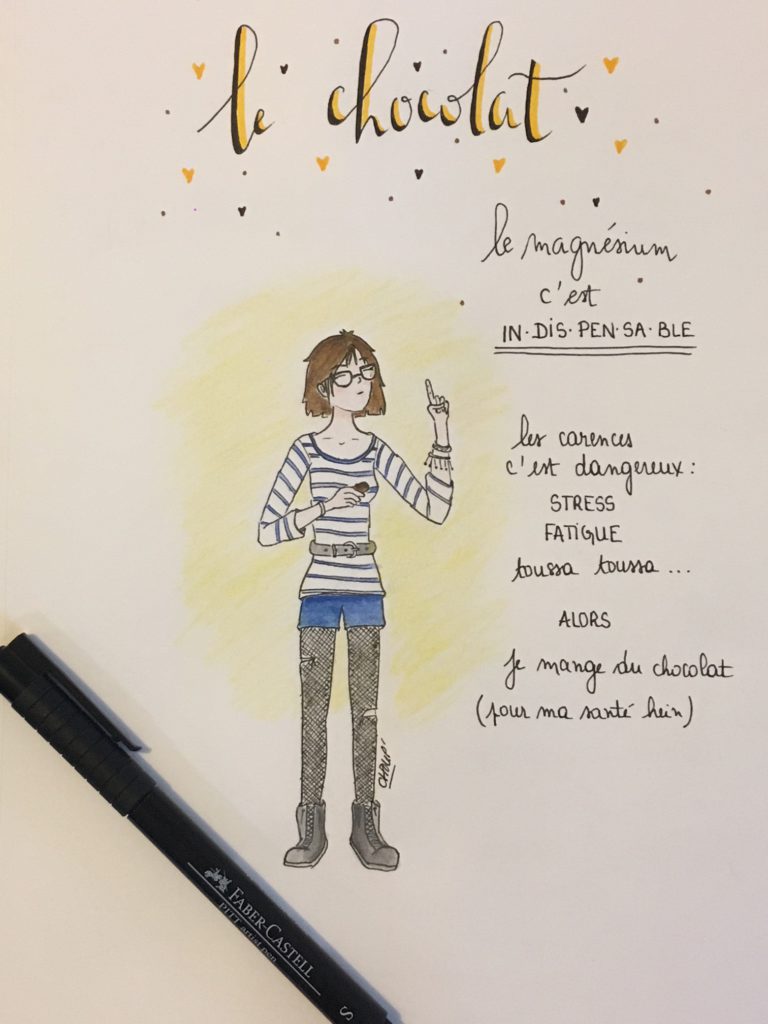 le chocolat
le magnésium
c'est
IN·DIS·PEN·SA·BLE
les carences
c'est dangereux :
STRESS
FATIGUE
toussa toussa ...
ALORS
Je mange du chocolat
(pour ma santé hein)
CHOUPI
FABER-CASTELL
PITT artist pen
S